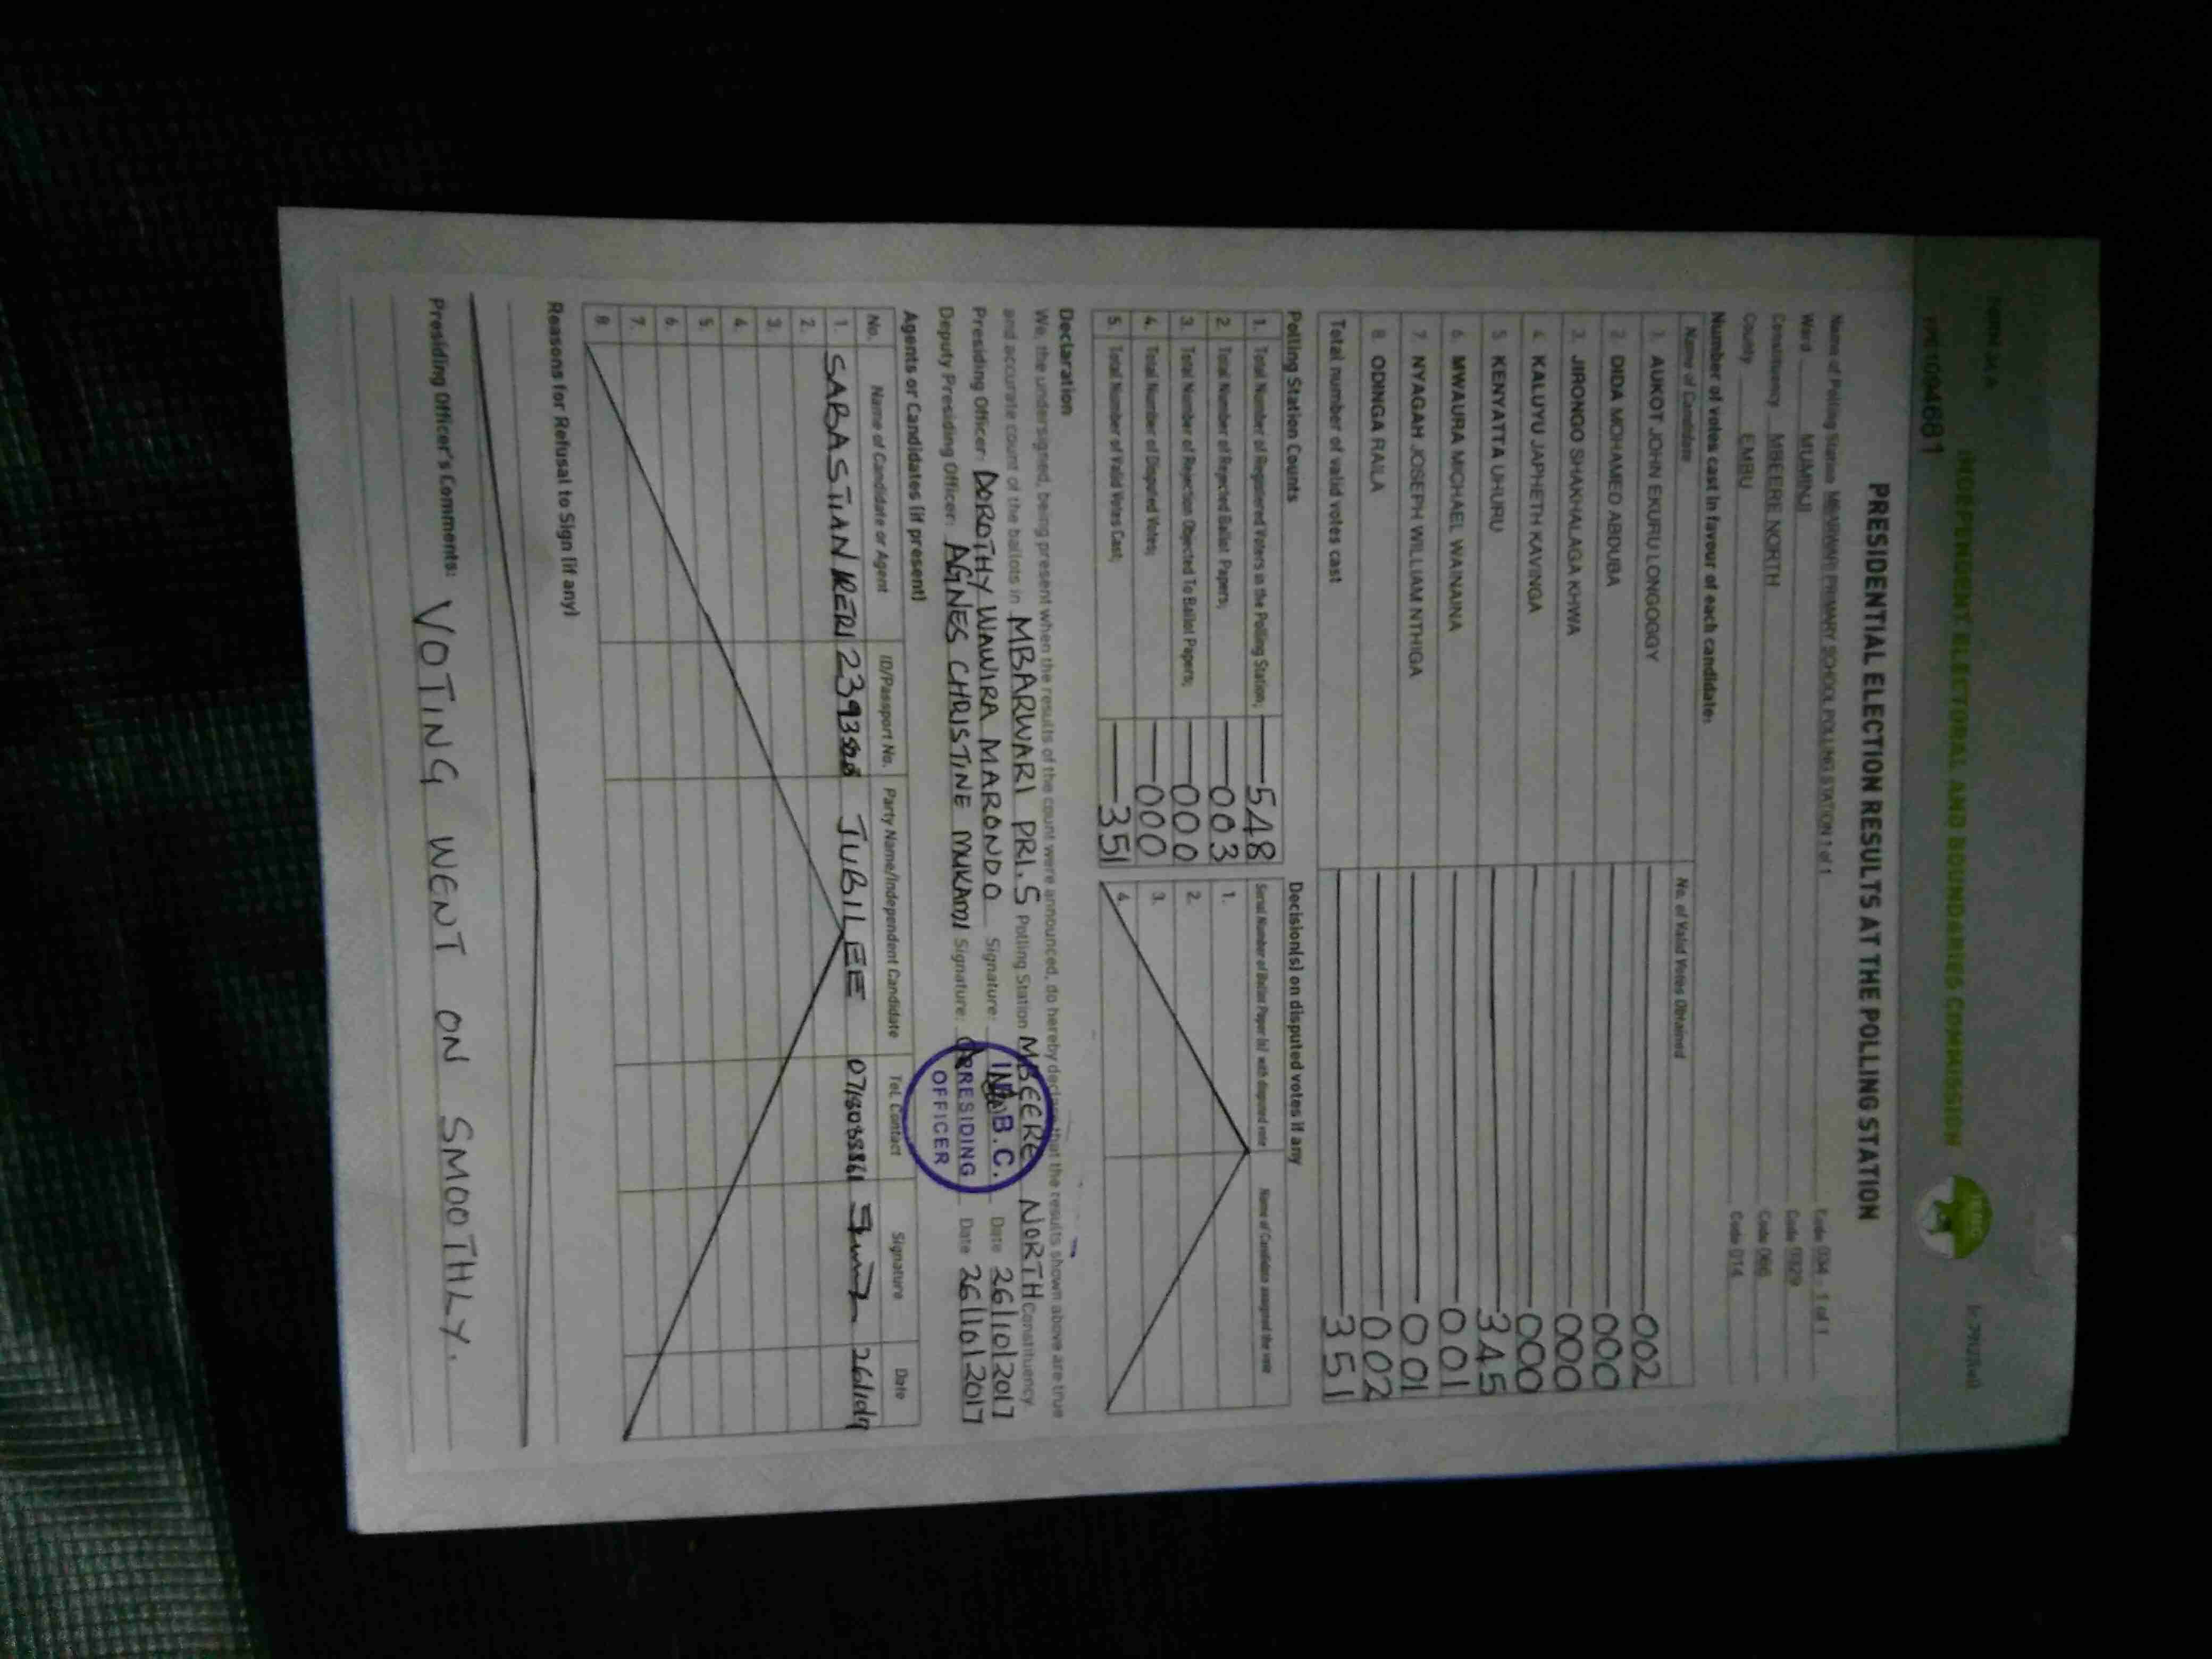 FORM 34 A
INDEPENDENT ELECTORAL AND BOUNDARIES COMMISSION
IEBC
PRESIDENTIAL ELECTION RESULTS AT THE POLLING STATION
Name of Polling Station MBARWARI PRIMARY SCHOOL POLLING STATION 1 of 1 Code 034 - 1 of 1
Ward MUMINJI Code 0329
Constituency MBEERE NORTH Code 066
County EMBU Code 014
Number of votes cast in favour of each candidate:
Name of Candidate No. of Valid Votes Obtained
1. AUKOT JOHN EKURU LONGOGGY 002
2. DIDA MOHAMED ABDUBA 000
3. JIRONGO SHAKHALAGA KHWA 000
4. KALUYU JAPHETH KAVINGA 000
5. KENYATTA UHURU 345
6. MWAURA MICHAEL WAINAINA 001
7. NYAGAH JOSEPH WILLIAM NTHIGA 001
8. ODINGA RAILA 002
Total number of valid votes cast 351
Polling Station Counts
1. Total Number of Registered Voters in the Polling Station; 548
2. Total Number of Rejected Ballot Papers; 003
3. Total Number of Rejection Objected To Ballot Papers; 000
4. Total Number of Disputed Votes; 000
5. Total Number of Valid Votes Cast; 351
Decision(s) on disputed votes if any
Serial Number of Ballot Paper (s) with disputed vote Name of Candidate assigned the vote
1.
2.
3.
4.
Declaration
We, the undersigned, being present when the results of the count were announced, do hereby declare that the results shown above are true
and accurate count of the ballots in MBARWARI PRI.S Polling Station MBEERE NORTH Constituency
Presiding Officer: DOROTHY WAWIRA MARONDO Signature: Date 26/10/2017
Deputy Presiding Officer: AGNES CHRISTINE MUKAMI Signature: Date 26/10/2017
I.E.B.C.
PRESIDING
OFFICER
Agents or Candidates (if present)
No. Name of Candidate or Agent ID/Passport No. Party Name/Independent Candidate Tel. Contact Signature Date
1. SABASTIAN IRERI JUBILEE
2.
3.
4.
5.
6.
7.
8.
Reasons for Refusal to Sign (if any)
Presiding Officer's Comments: VOTING WENT ON SMOOTHLY.